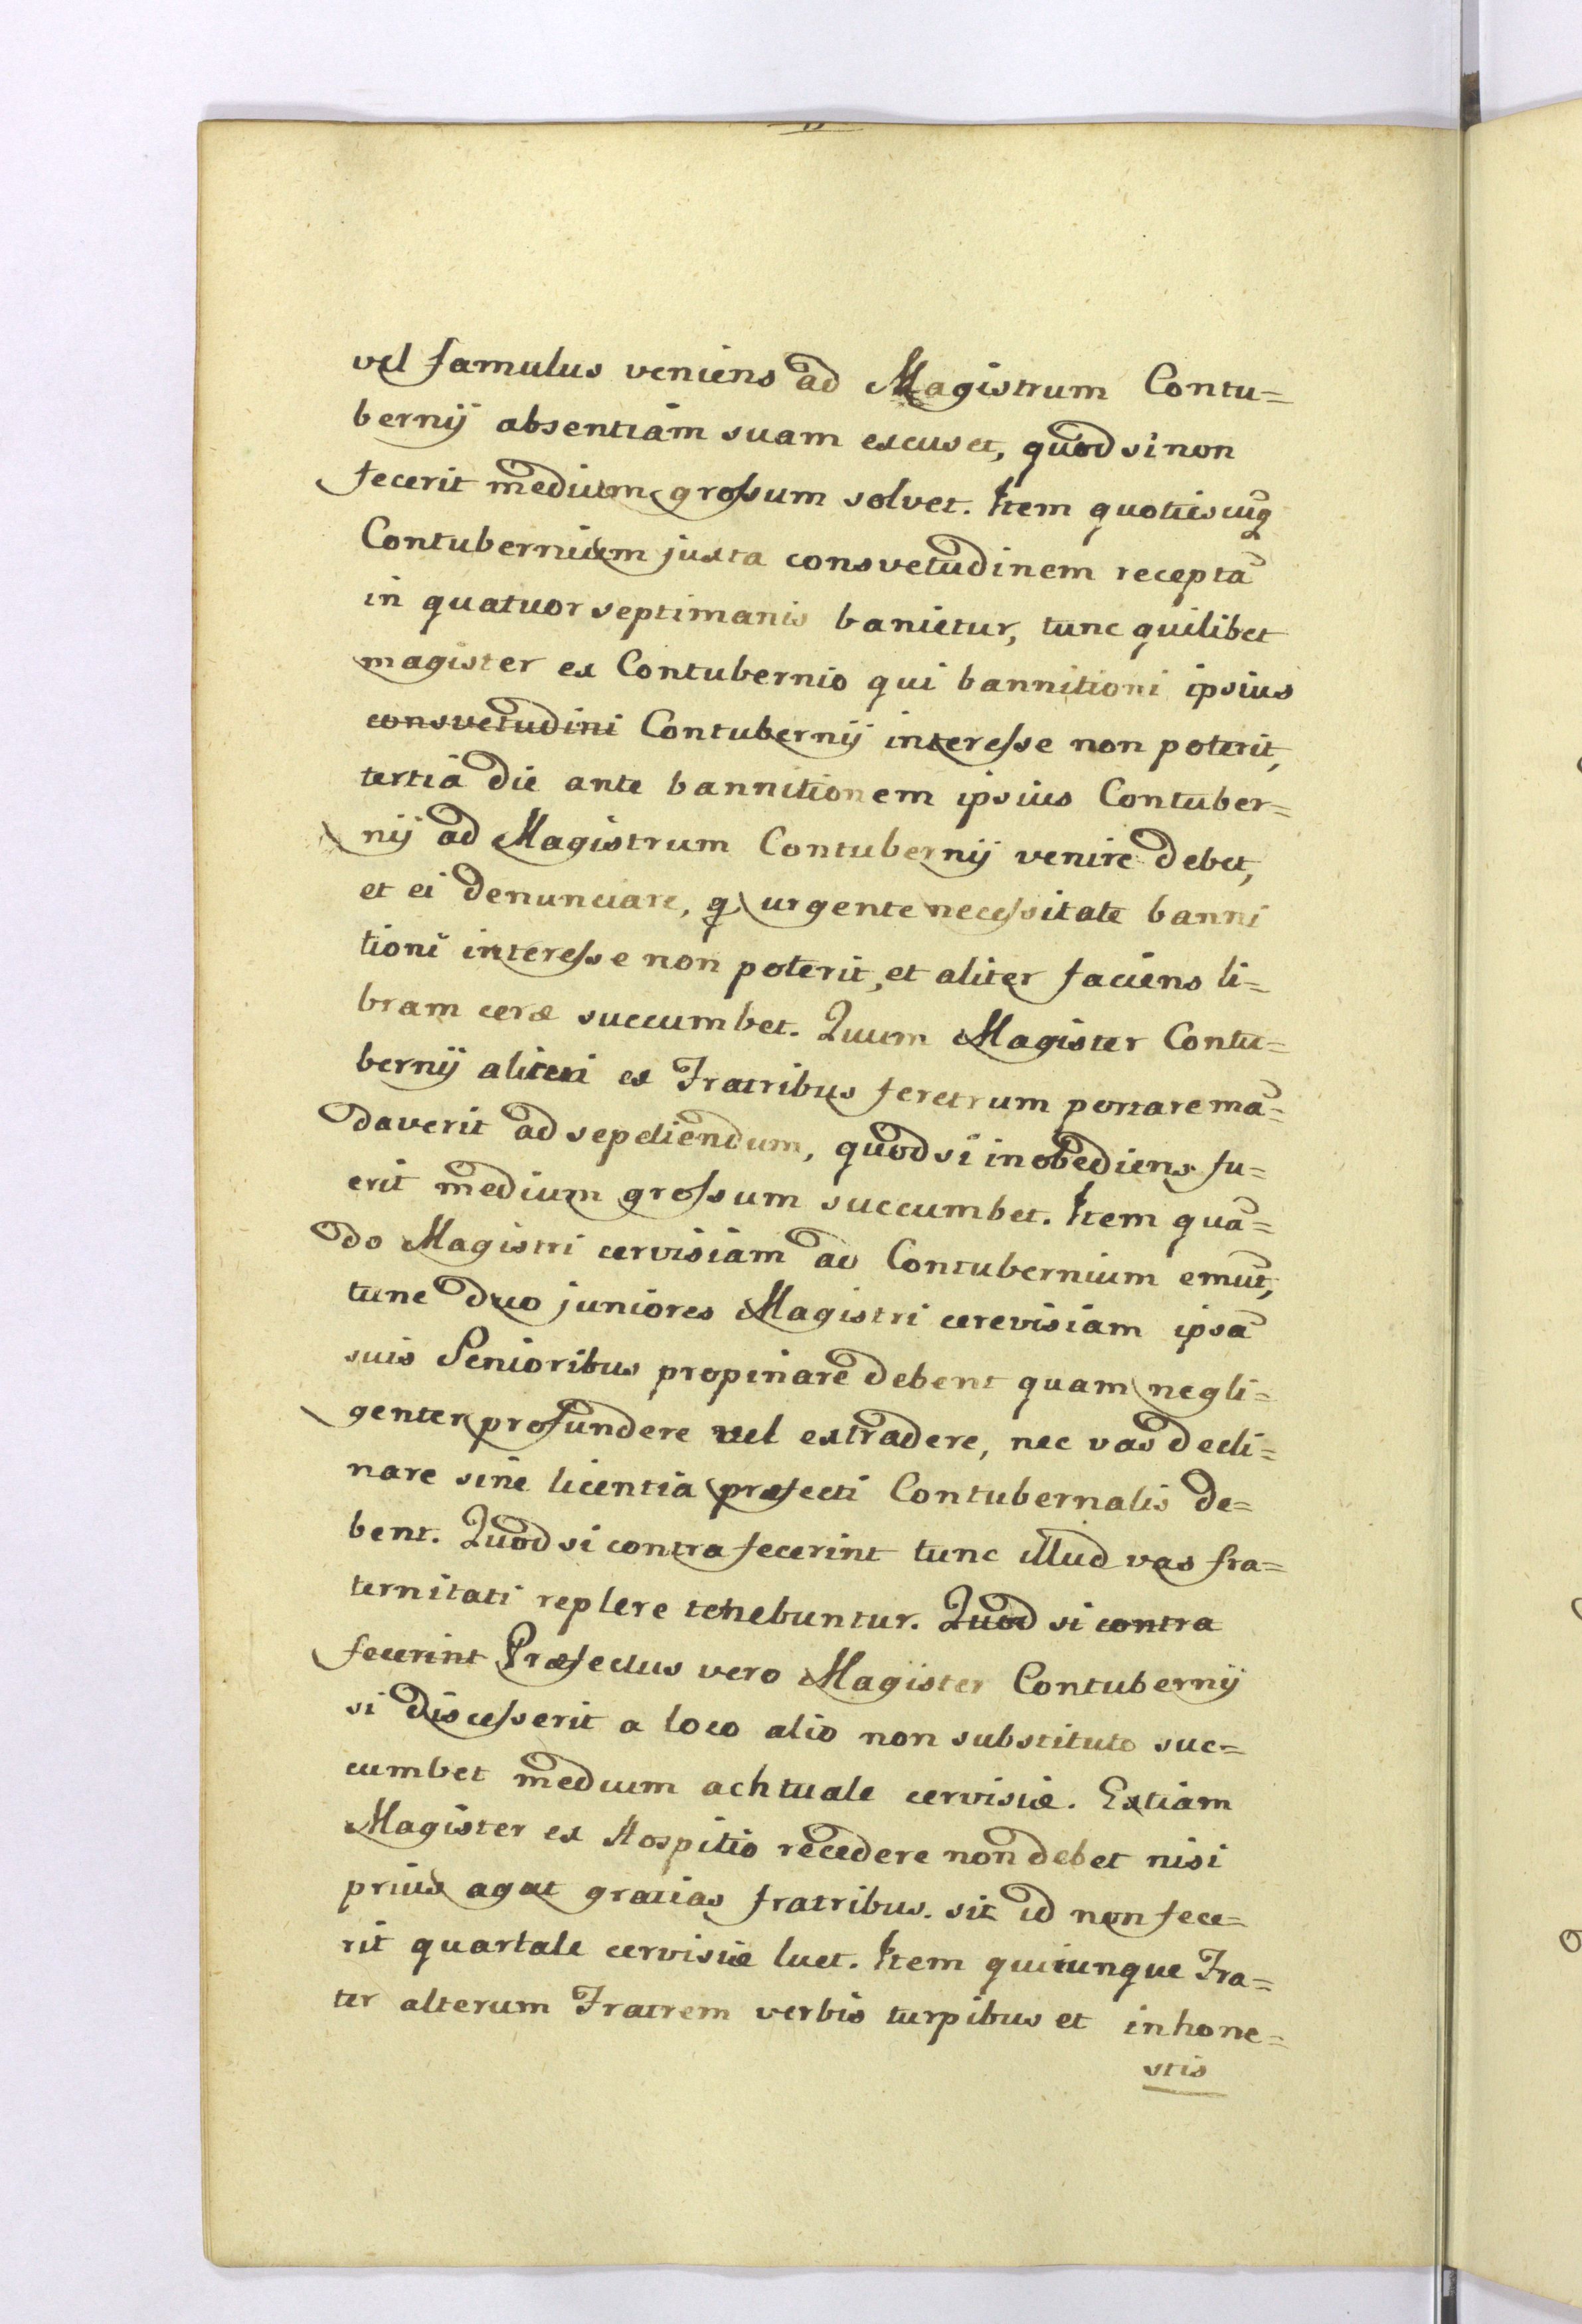 vel famulus veniens ad Magistrum Contu=
bernij absentiam suam excuset, quod si non
fecerit medium grossum solvet. Item quotiescuq̃
Contubernium juxta consvetudinem receptã
in quatuor septimanis banietur, tunc quilibet
magister ex Contubernio qui bannitioni ipsius
consvetudini Contubernij interesse non poterit,
tertia die ante bannitionem ipsius Contuber=
nij ad Magistrum Contubernij venire debet,
et ei denunciare, q urgente necessitate banni
tioni interesse non poterit, et aliter faciens li=
bram ceræ succumbet. Quum Magister Contu=
bernij alicui ex Fratribus feretrum portare mã=
daverit ad sepeliendum, quod si inobediens fu=
erit medium grossum succumbet. Item quã=
do Magistri cervisiam ad Contubernium emũt,
tunc duo juniores Magistri cerevisiam ipsã
suis Senioribus propinare debent quam negli=
genter profundere vel extradere, nec vas decli=
nare sine licentia præfecti Contubernalis de=
bent. Quod si contra fecerint tunc illud vas fra=
ternitati replere tenebuntur. Quod si contra
fecerint Præfectus vero Magister Contubernij
si discesserit a loco alio non substituto suc=
cumbet medium achtuale cervisiæ. Extiam
Magister ex Hospitio recedere non debet nisi
prius agat gratias fratribus. sit id non fece=
rit quartale cervisiæ luet. Item quicunque Fra=
ter alterum Fratrem verbis turpibus et inhone=
stis